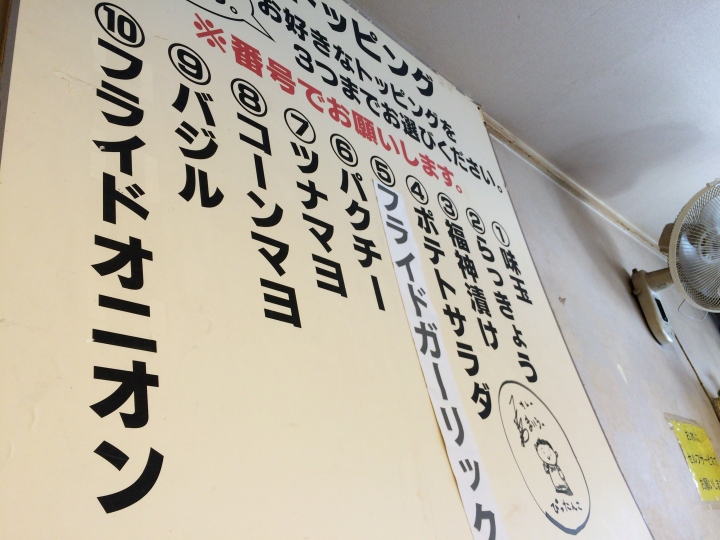 トッピング
す。
お好きなトッピングを
3つまでお選びください。
※番号でお願いします。
①味玉
②らっきょう
③福神漬け
④ポテトサラダ
⑤フライドガーリック
⑥パクチー
⑦ツナマヨ
⑧コーンマヨ
⑨バジル
⑩フライドオニオン
ぴったんこ
セルフサービスで
お願いしま